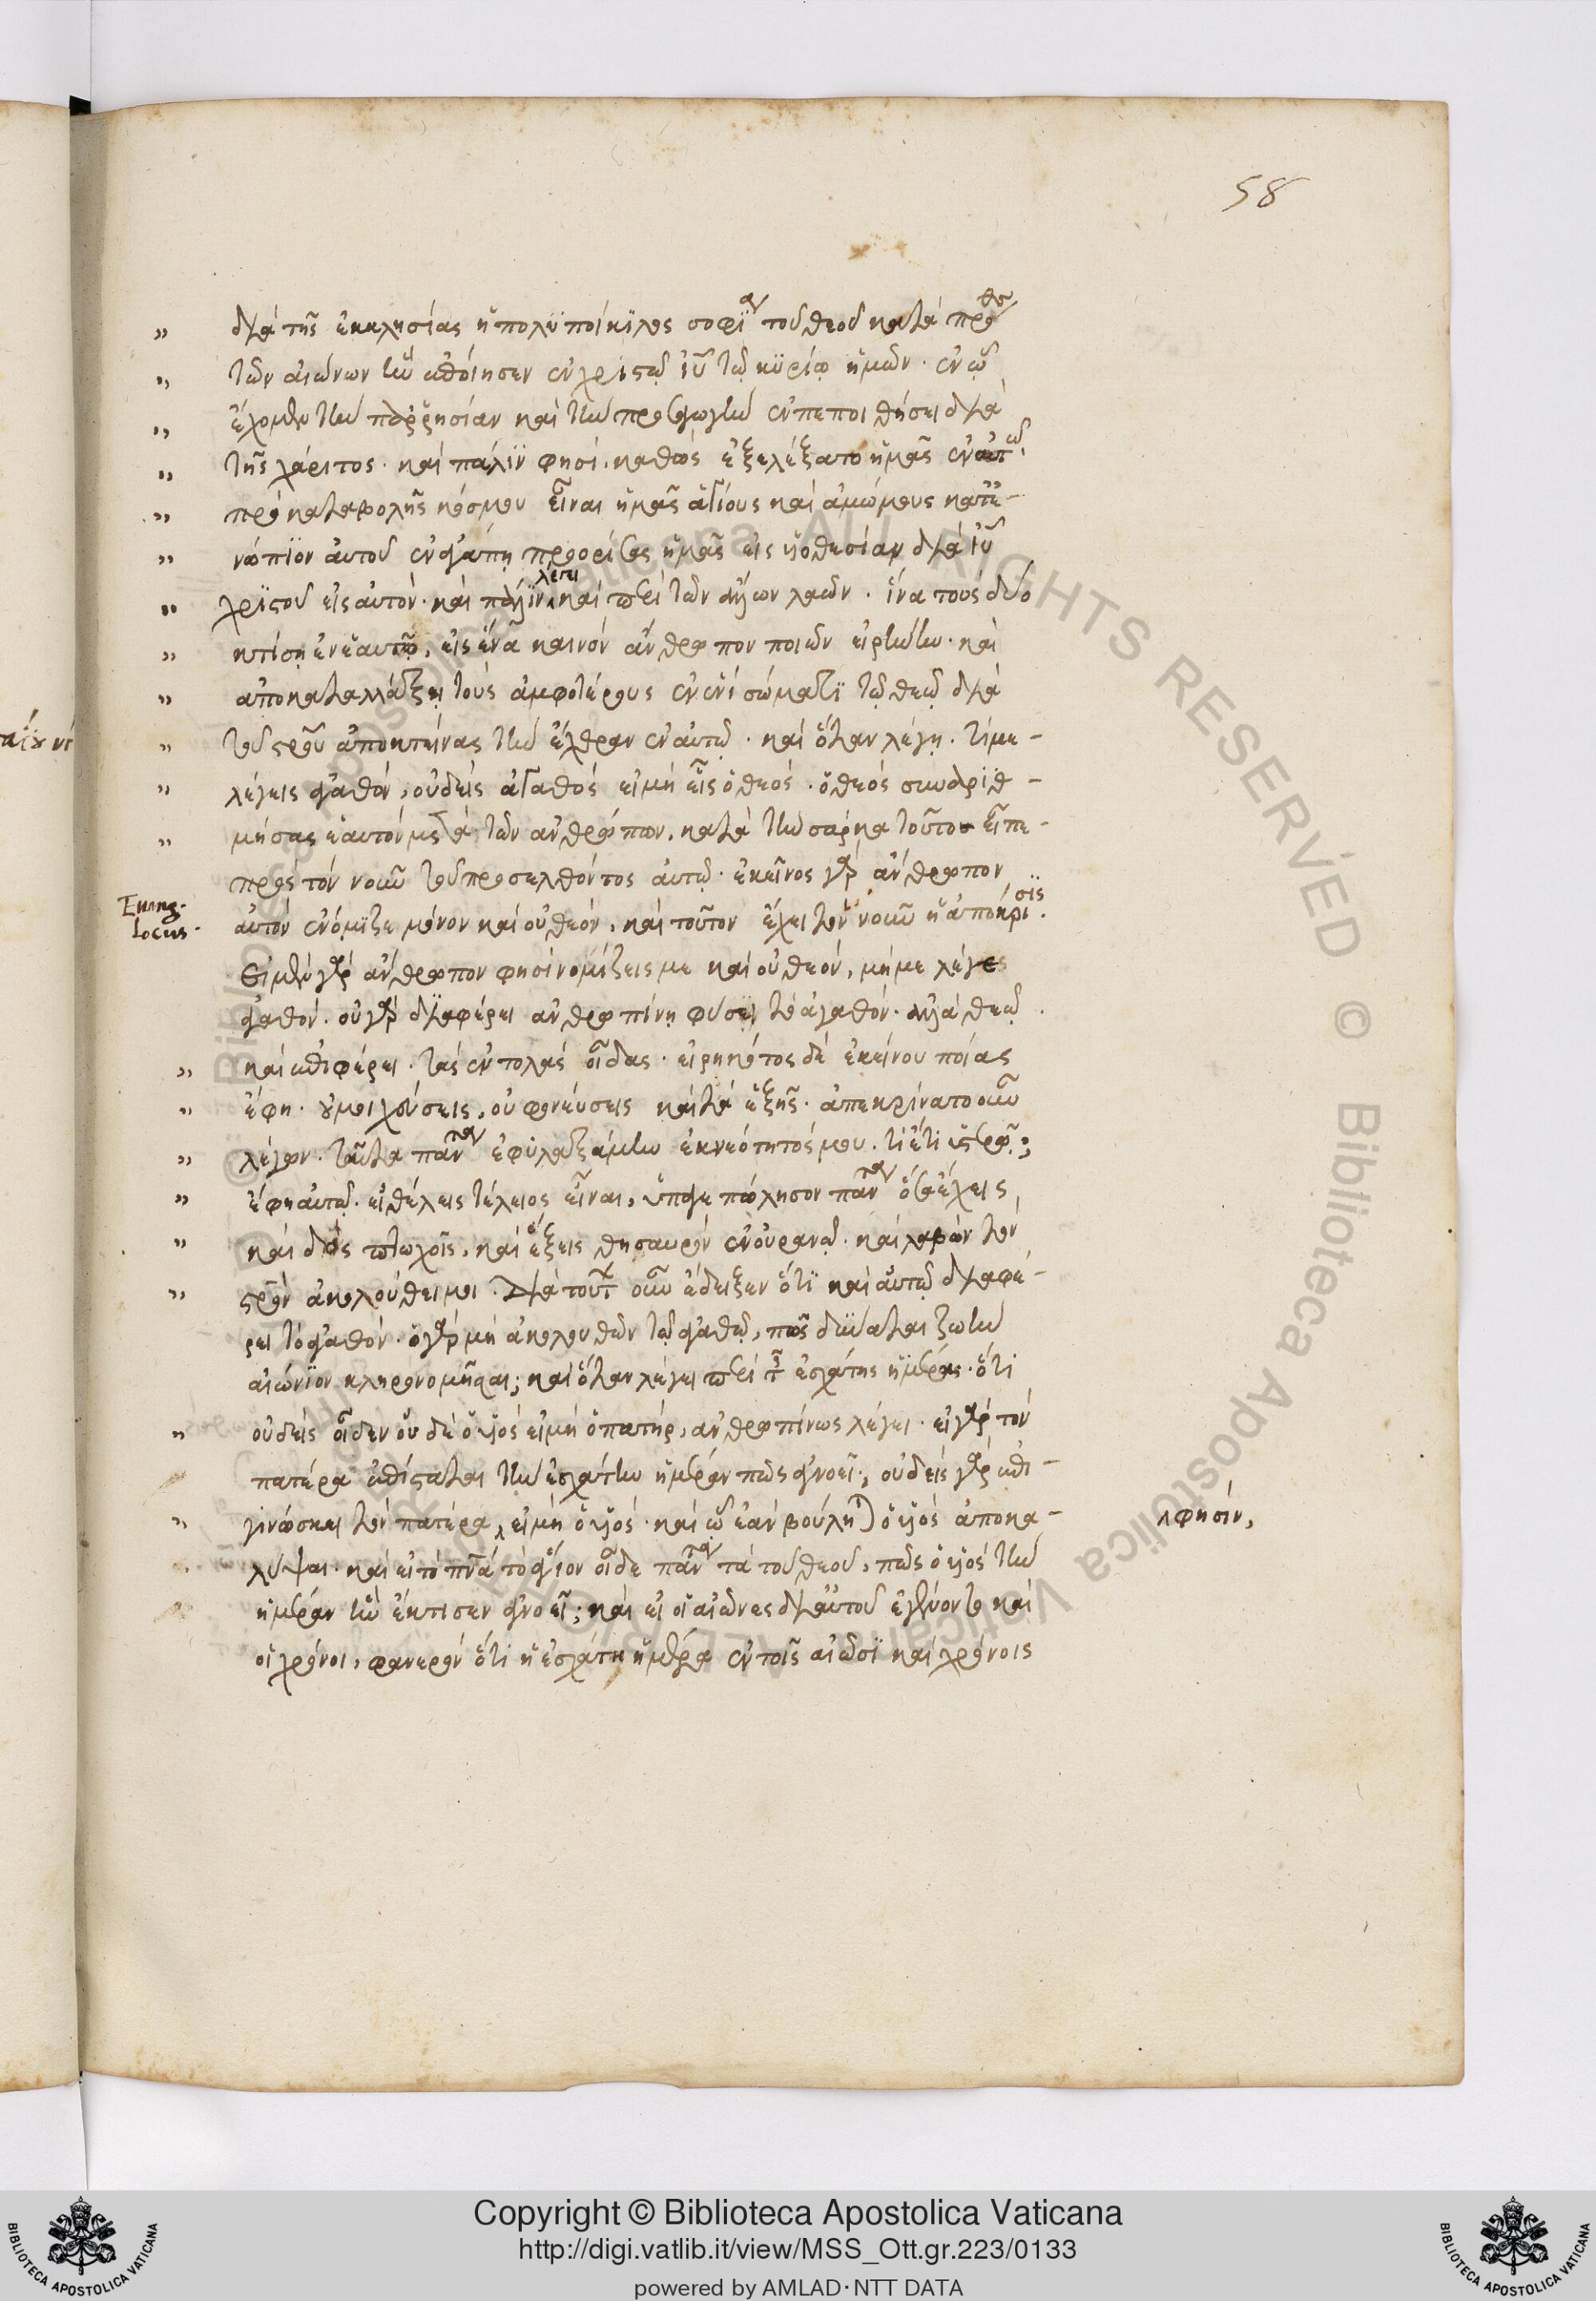 58
διὰ τῆς ἐκκλησίας ἡ πολυποίκιλος σοφία τοῦ θεοῦ κατὰ πρόθεσιν
τῶν αἰώνων ἣν ἐποίησεν ἐν χριστῷ ἰῦ τῷ κυρίῳ ἡμῶν · ἐν ᾧ
ἔχομεν τὴν παρρησίαν καὶ τὴν προσαγωγὴν ἐν πεποιθήσει διὰ
τῆς χάριτος · καὶ πάλιν φησί · καθὼς ἐξελέξατο ἡμᾶς ἐν αὐτῷ
πρὸ καταβολῆς κόσμου εἶναι ἡμᾶς ἁγίους καὶ ἀμώμους κατε-
νώπιον αὐτοῦ ἐν ἀγάπῃ προορίσας ἡμᾶς εἰς υἱοθεσίαν διὰ ἰῦ
χριστοῦ εἰς αὐτόν · καὶ πάλιν λέγει καὶ περὶ τῶν ἄλλων λαῶν · ἵνα τοὺς δύο
κτίσῃ ἐν ἑαυτῷ, εἰς ἕνα καινὸν ἄνθρωπον ποιῶν εἰρήνην · καὶ
ἀποκαταλλάξῃ τοὺς ἀμφοτέρους ἐν ἑνὶ σώματι τῷ θεῷ διὰ
τοῦ σροῦ ἀποκτείνας τὴν ἔχθραν ἐν αὐτῷ · καὶ ὅταν λέγῃ · τί με-
λέγεις ἀγαθόν, οὐδεὶς ἀγαθὸς εἰ μὴ εἷς ὁ θεός · ὁ θεὸς συναριθ-
μήσας ἑαυτὸν μετὰ τῶν ἀνθρώπων, κατὰ τὴν σάρκα τοῦτο εἶπε-
πρὸς τὸν νοῦν τοῦ προσελθόντος αὐτῷ · ἐκεῖνος γὰρ ἄνθρωπον
Euang. locus
αὐτὸν ἐνόμιζε μόνον καὶ οὐ θεόν, καὶ τοῦτον ἔχει τὸν νοῦν ἡ ἀπόκρισις.
Εἰ μὲν γὰρ ἄνθρωπον φησὶ νομίζεις με καὶ οὐ θεόν, μή με λέγε
ἀγαθόν · οὐ γὰρ διαφέρει ἀνθρωπίνῃ φύσει τὸ ἀγαθόν · ἀλλὰ θεῷ.
καὶ ἐπιφέρει · τὰς ἐντολὰς οἶδας · εἰρηκότος δὲ ἐκείνου ποίας
ἔφη · οὐ μοιχεύσεις, οὐ φονεύσεις καὶ τὰ ἑξῆς · ἀπεκρίνατο οὖν
λέγων · ταῦτα πάντα ἐφυλαξάμην ἐκ νεότητός μου · τί ἔτι ὑστερῶ;
ἔφη αὐτῷ · εἰ θέλεις τέλειος εἶναι, ὕπαγε πώλησον πάντα ὅσα ἔχεις,
καὶ δὸς πτωχοῖς, καὶ ἕξεις θησαυρὸν ἐν οὐρανῷ · καὶ λαβὼν τὸν
σρὸν ἀκολούθει μοι · Διὰ τοῦτο οὖν ἔδειξεν ὅτι καὶ αὐτῷ διαφέ-
ρει τὸ ἀγαθόν · ὁ γὰρ μὴ ἀκολουθῶν τῷ ἀγαθῷ, πῶς δύναται ζωὴν
αἰώνιον κληρονομῆσαι; καὶ ὅταν λέγει περὶ τῆς ἐσχάτης ἡμέρας · ὅτι
οὐδεὶς οἶδεν οὐδὲ ὁ υἱὸς εἰ μὴ ὁ πατήρ, ἀνθρωπίνως λέγει · εἰ γὰρ τὸν
πατέρα ἐπίσταται τὴν ἐσχάτην ἡμέραν πῶς ἀγνοεῖ; οὐδεὶς γὰρ ἐπι-
γινώσκει τὸν πατέρα, εἰ μὴ ὁ υἱός · καὶ ᾧ ἐὰν βούληται ὁ υἱὸς ἀποκα-
φησίν,
λύψαι · καὶ εἰ τὸ πνᾶ τὸ ἅγιον οἶδε πάντα τὰ τοῦ θεοῦ, πῶς ὁ υἱὸς τὴν
ἡμέραν ἣν ἔκτισεν ἀγνοεῖ; καὶ εἰ οἱ αἰῶνες δι αὐτοῦ ἐγένοντο καὶ
οἱ χρόνοι, φανερὸν ὅτι ἡ ἐσχάτη ἡμέρα ἐν τοῖς αἰῶσι καὶ χρόνοις
Copyright © Biblioteca Apostolica Vaticana
http://digi.vatlib.it/view/MSS_Ott.gr.223/0133
powered by AMLAD·NTT DATA